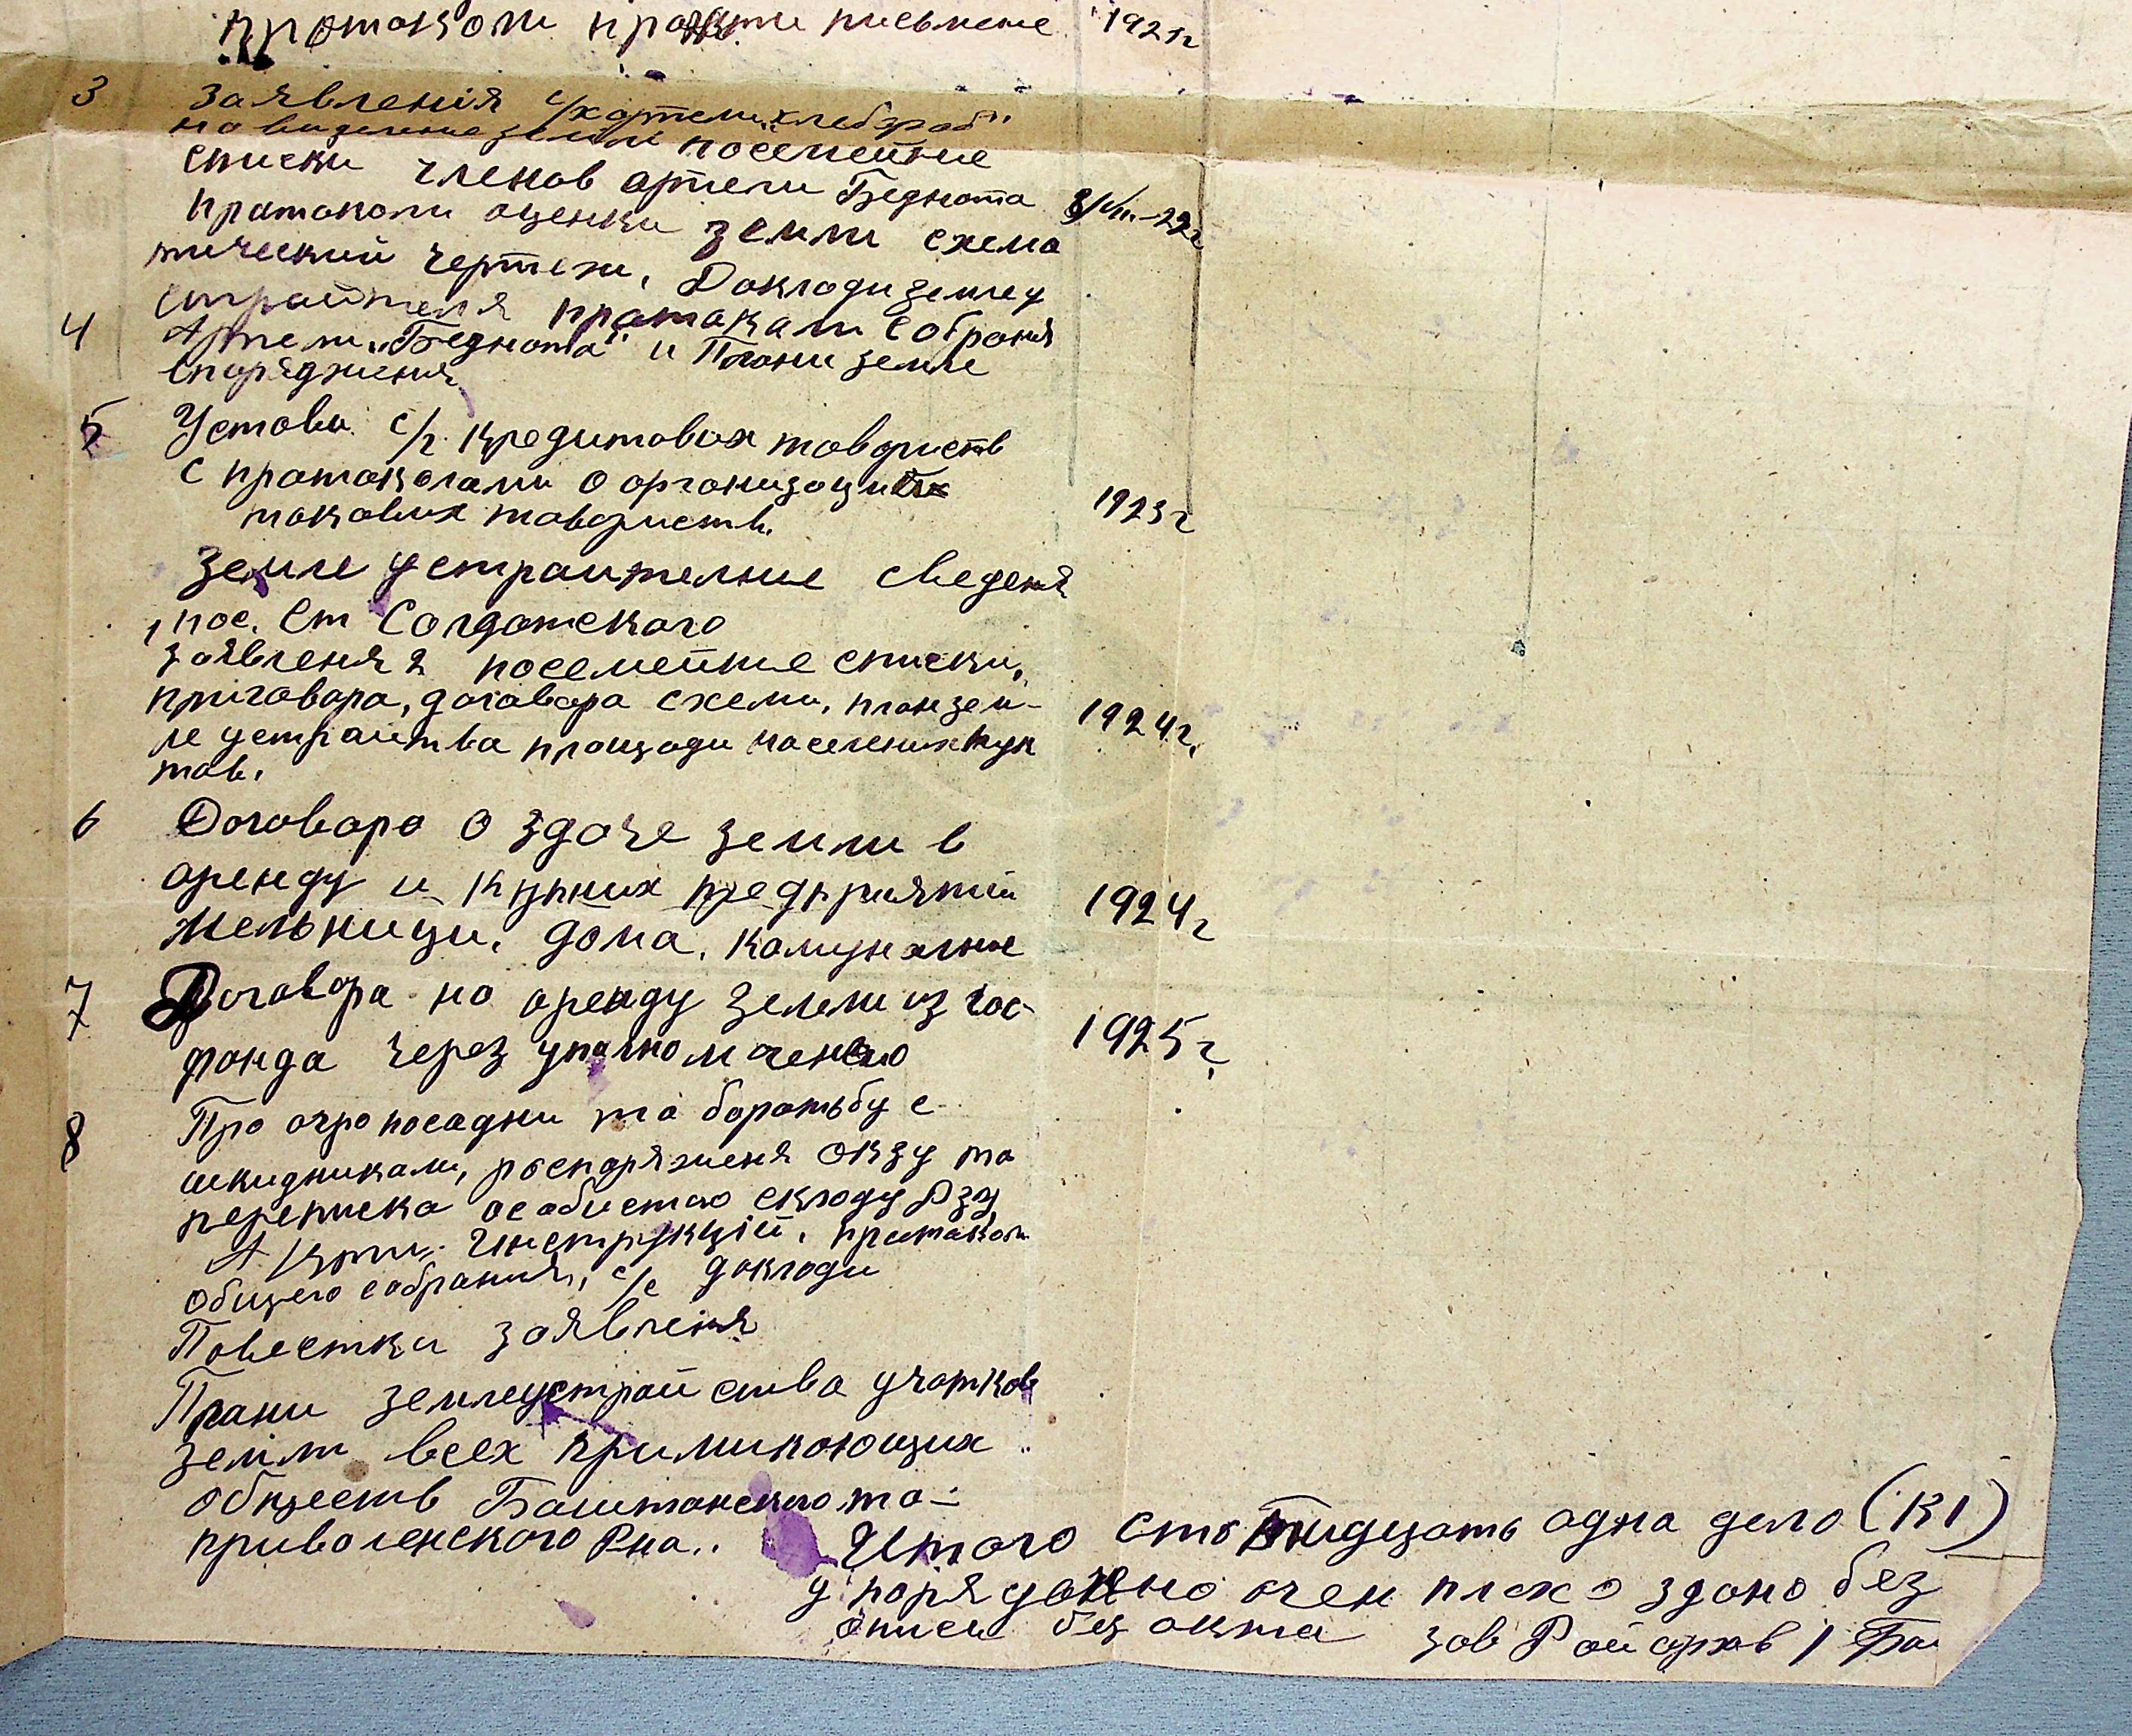 протоколи письмене 1921г
3 Заявленія с/х артели „хлебороб"
на виделение земли посемейние
списки членов артели Беднота 8/VII.-22г
пратоколи оценки земли схема
тический чертежи, Доклади землеу
страйтеля пратакали Собрания
4 Артели „Беднота" и Плани земле
спаряджения
5 Устави с/г. кредитових товариств
с пратоколами о организации 1923г
таковых товариств.
Земле устраительние сведеня
пос. Ст Солдатского
заявления посемейние списки,
приговора, договора схеми, план зем-
ле устрайтва площади населених пун 1924г.
тов.
6 Договора о здаче земли в
аренду и предприятий 1924г
Мельници, дома, Камунальние
7 Договора на аренду Земли из гос-
фонда через упалномоченого 1925г.
8 Про агро посадки та боратьбу с
шкидниками, роспоряженя ОКЗУ та
переписка особистаго складу РЗУ
Акти, Инструкцій, пратокол
общего собрания, с/с доклади
Повестки заявленя
Плани землеустрайства участков
земли всех примикающих
обществ Баштанского та-
приволенского Рна..
Итого сто тридцать одна дело (К1)
упорядочено очен плохо здано без
описи без акта зав Райархв /